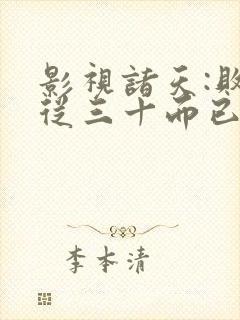 影視諸天:
從三十而已
李本清